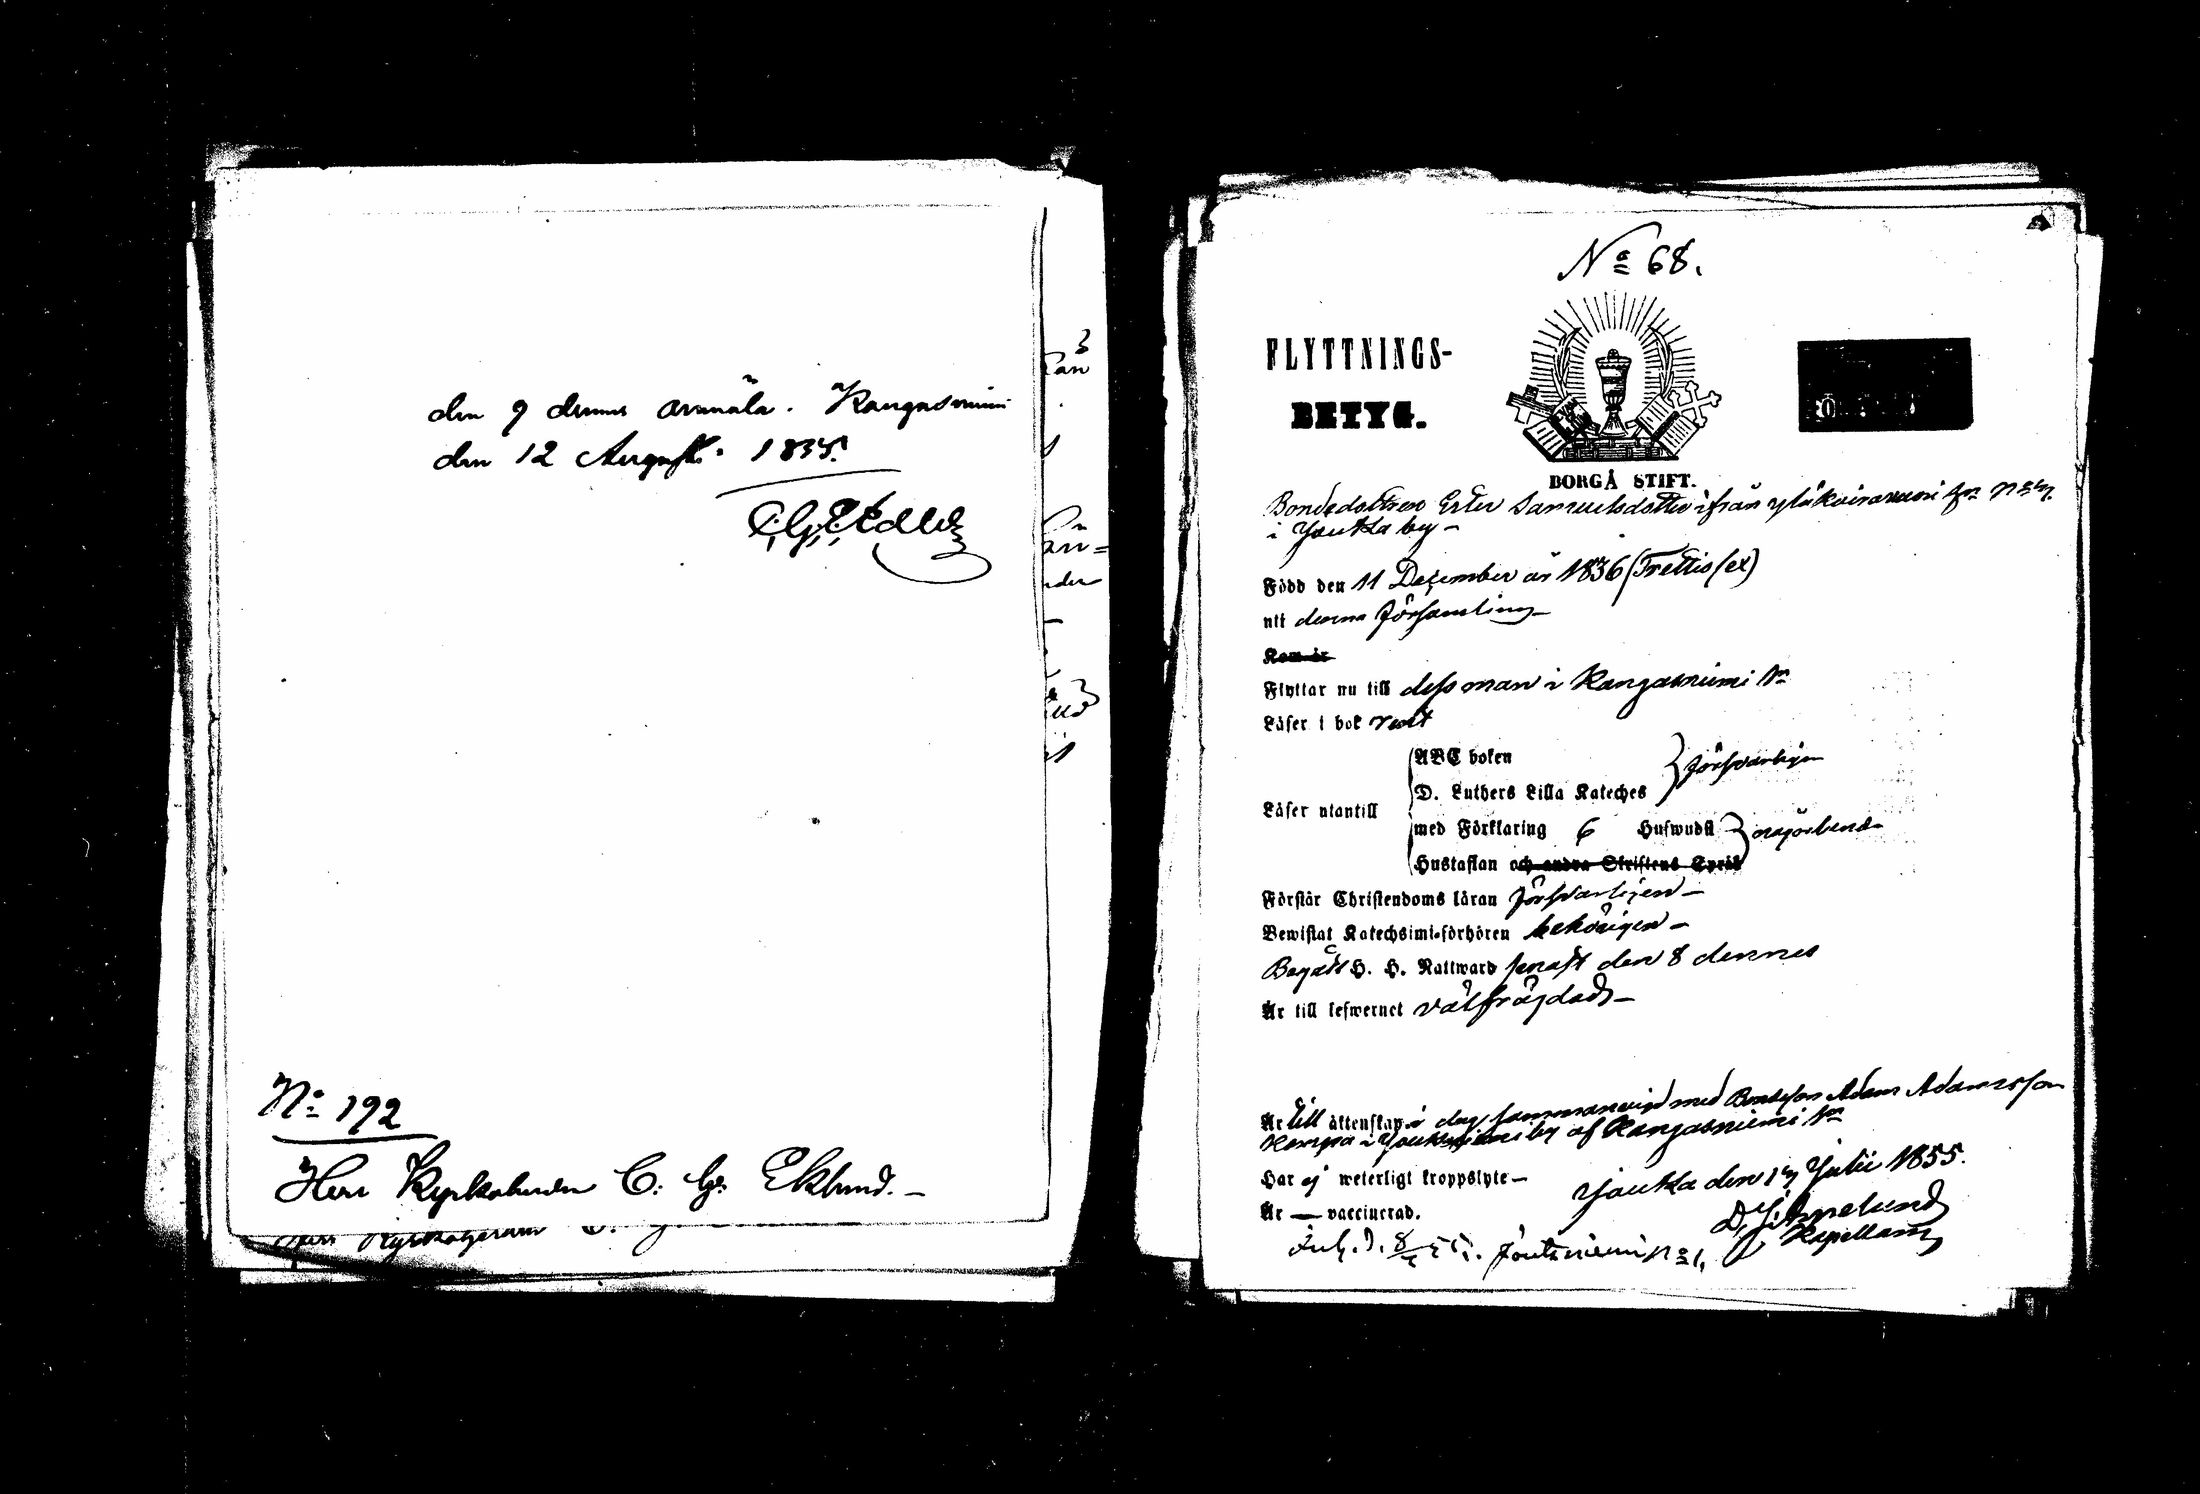 den 9 dennes anmäla. Kangasniemi
den 12 August. 1855.
N:o 192
Herr Kyrkoherden C. G. Eklund. -
No 68.
FLYTTNINGS-
BETYG.
BORGÅ STIFT.
Bondedottren Ester Samuelsdotter ifrån No 7.
i Joutsa by -
Född den 11 December år 1836 (Trettiosex)
uti denna församling -
Kom år
Flyttar nu till dess man i Kangasniemi Sn
Läser i bok rent
ABC boken
D. Luthers Lilla Kateches
försvarligen
Läser utantill
med Förklaring 6 Hufwudst
någorlunda
Hustaflan och andra Skriftens Språk
Förstår Christendoms läran försvarligen -
Bewistat Katechsimi-förhören behörigen -
Begått H. H. Nattward senast den 8 dennes
Är till lefwernet välfrägdad -
Är till äktenskap i dag sammanvigd med Bondeson Adam Adamsson
Kemppa i by af Kangasniemi Sn
Har ej weterligt kroppslyte -
Joutsa den 17 Julii 1855.
Är — vaccinerad.
Kapellan